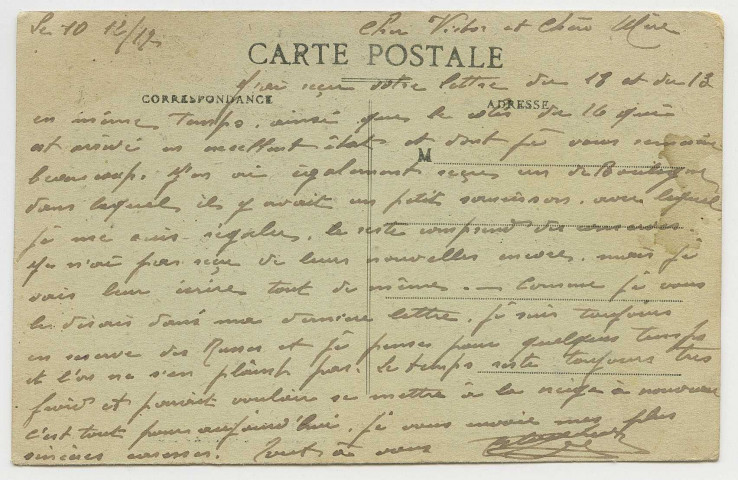 Le 10 12/19 Cher Victor et Chère Mère
CARTE POSTALE
J'ai reçu votre lettre du 13 et du 13
CORRESPONDANCE ADRESSE
en même temps, ainsi que le colis de 16 qui
est arrivé en excellent état et dont je vous remercie
M
beaucoup. J'en ai également reçu un de Boulogne
dans lequel il y avait un petit saucisson, avec lequel
je me suis régalé, le reste comprend des conserves.
Je n'ai pas reçu de leurs nouvelles encore, mais je
vais leur écrire tout de même. — Comme je vous
le disais dans ma dernière lettre, je suis toujours
en réserve des Russes et je pense pour quelques temps
et l'on ne s'en plaint pas. Le temps reste toujours très
froid et paraît vouloir se mettre à la neige à nouveau
c'est tout pour aujourd'hui, je vous envoie mes plus
sincères caresses. Tout à vous